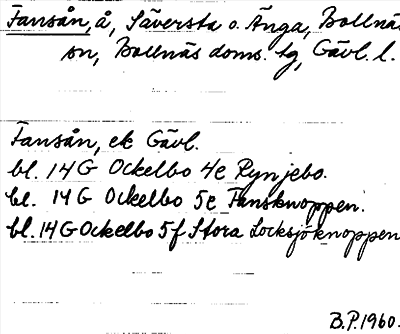 Fansån, å, Säversta o. Änga, Bollnäs
sn, Bollnäs doms. tg, Gävl. l.
Fansån, ek Gävl.
bl. 14G Ockelbo 4e Rynjebo.
bl. 14G Ockelbo 5e Fansknoppen.
bl. 14G Ockelbo 5f Stora Locksjöknoppen
B.P. 1960.